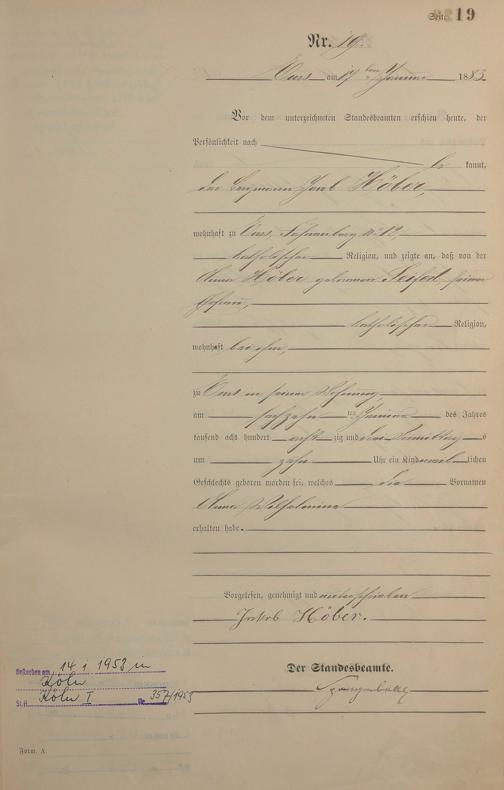 19
Nr. 19.
am 17 ten Januar 1883
Vor dem unterzeichneten Standesbeamten erschien heute, der
Persönlichkeit nach
be kannt,
der Bergmann Jacob Höber,
wohnhaft zu
katholischer Religion, und zeigte an, daß von der
Anna Höber geborenen Seifert, seiner
Ehefrau,
katholischer Religion,
wohnhaft bei ihm,
zu in seiner Wohnung
am sechzehn ten Januar des Jahres
tausend acht hundert acht zig und drei Vormittag s
um zehn Uhr ein Kind weib lichen
Geschlechts geboren worden sei, welches die Vornamen
Anna Wilhelmina
erhalten habe.
Vorgelesen, genehmigt und unterschrieben
Jakob Höber.
Der Standesbeamte.
14 1 1953 in
Köln
St.A. Köln I Nr. 357/1953
Form. A.